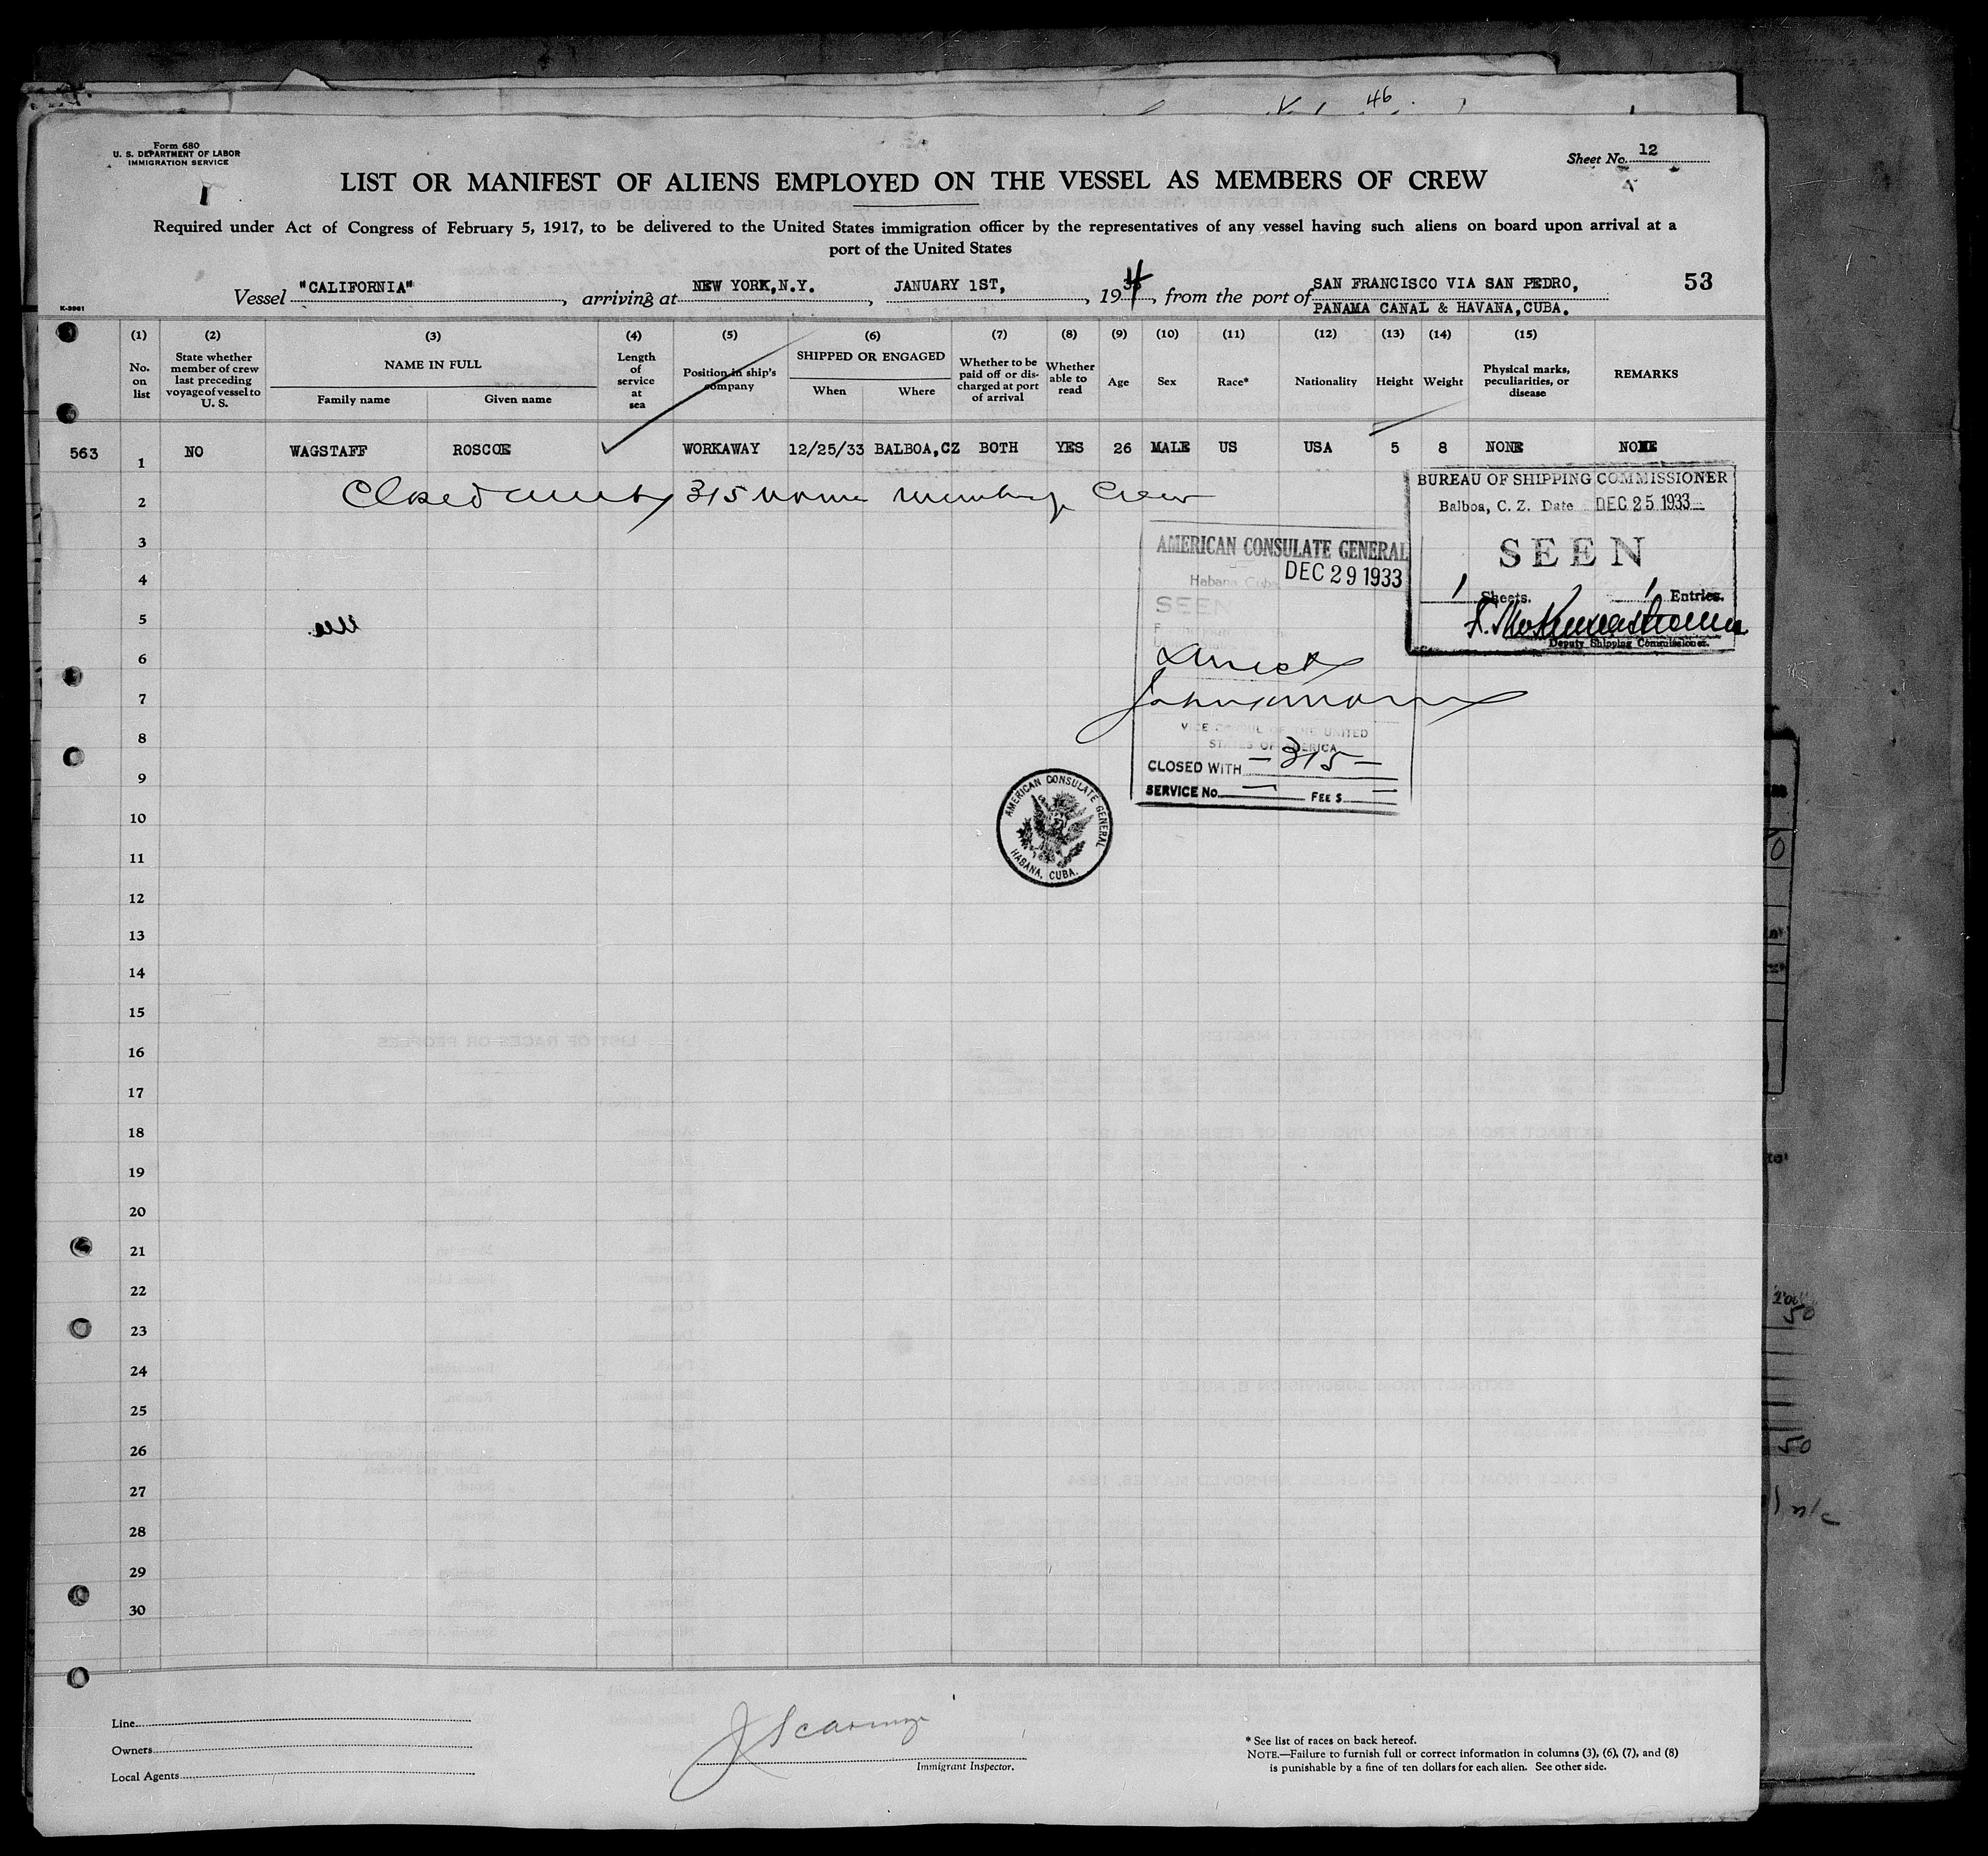 46
Form 680
U. S. DEPARTMENT OF LABOR
IMMIGRATION SERVICE
Sheet No. 12
LIST OR MANIFEST OF ALIENS EMPLOYED ON THE VESSEL AS MEMBERS OF CREW
Required under Act of Congress of February 5, 1917, to be delivered to the United States immigration officer by the representatives of any vessel having such aliens on board upon arrival at a
port of the United States
Vessel "CALIFORNIA", arriving at NEW YORK,N.Y., JANUARY 1ST, 1934, from the port of SAN FRANCISCO VIA SAN PEDRO,
PANAMA CANAL & HAVANA,CUBA.
53
K-3961
(1) (2) (3) (4) (5) (6) (7) (8) (9) (10) (11) (12) (13) (14) (15)
No. on list
State whether member of crew last preceding voyage of vessel to U. S.
NAME IN FULL
Family name
Given name
Length of service at sea
Position in ship's company
SHIPPED OR ENGAGED
When
Where
Whether to be paid off or discharged at port of arrival
Whether able to read
Age
Sex
Race*
Nationality
Height
Weight
Physical marks, peculiarities, or disease
REMARKS
563 1 NO WAGSTAFF ROSCOE WORKAWAY 12/25/33 BALBOA,CZ BOTH YES 26 MALE US USA 5 8 NONE NONE
2 Closed with 315 names members crew
3
4
5
6
7
8
9
10
11
12
13
14
15
16
17
18
19
20
21
22
23
24
25
26
27
28
29
30
BUREAU OF SHIPPING COMMISSIONER
Balboa, C. Z. Date DEC 25 1933
SEEN
1 Sheets. 1 Entries.
Deputy Shipping Commissioner.
AMERICAN CONSULATE GENERAL
Habana, Cuba
DEC 29 1933
SEEN
VICE CONSUL OF THE UNITED
STATES OF AMERICA
CLOSED WITH - 315 -
SERVICE No. — FEE $ —
AMERICAN CONSULATE GENERAL
HABANA, CUBA.
Line
Owners
Local Agents
Immigrant Inspector.
* See list of races on back hereof.
NOTE.—Failure to furnish full or correct information in columns (3), (6), (7), and (8)
is punishable by a fine of ten dollars for each alien. See other side.